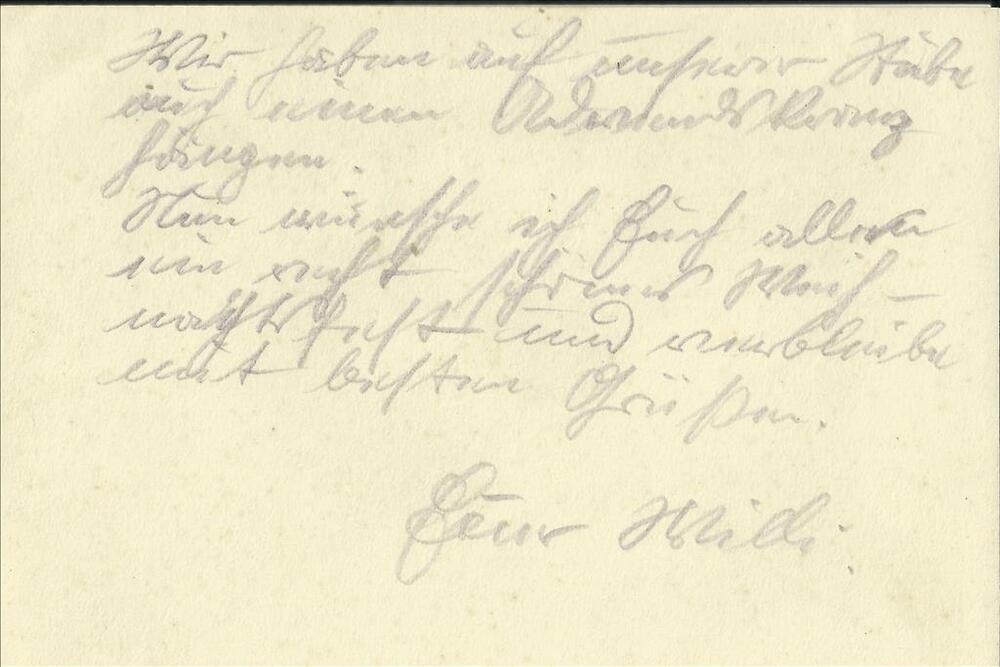 Wir haben auf unserer Stube
auch einen Adventskranz
hängen.
Nun wünsche ich Euch allen
ein recht schönes Weih-
nachtsfest und verbleibe
mit besten Grüßen.
Euer Willi.